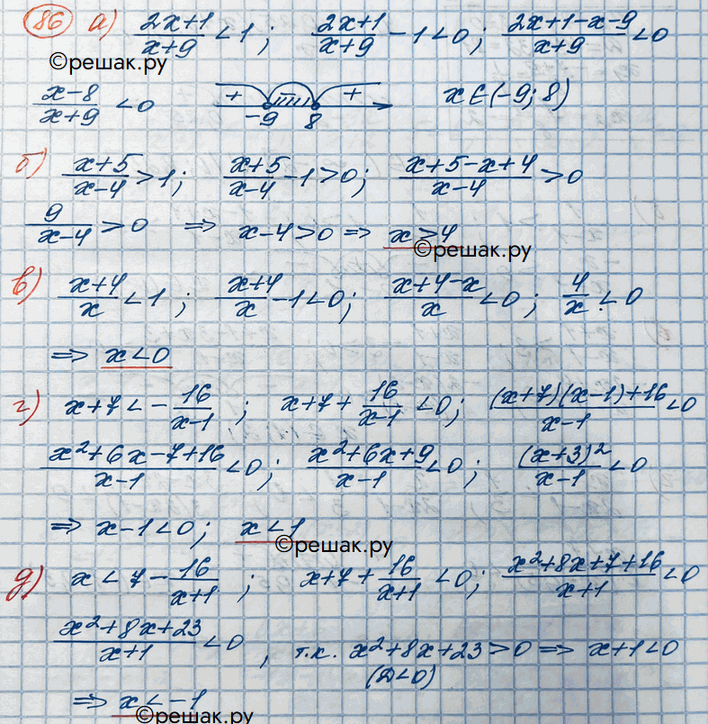 86 а) (2x+1)/(x+9) < 1 ; (2x+1)/(x+9) - 1 < 0 ; (2x+1-x-9)/(x+9) < 0
©решак.ру
(x-8)/(x+9) < 0 + - + -9 8 x∈(-9; 8)
б) (x+5)/(x-4) > 1 ; (x+5)/(x-4) - 1 > 0 ; (x+5-x+4)/(x-4) > 0
9/(x-4) > 0 ⇒ x-4>0 ⇒ x>4
©решак.ру
в) (x+4)/x < 1 ; (x+4)/x - 1 < 0 ; (x+4-x)/x < 0 ; 4/x < 0
⇒ x<0
г) x+7 < - 16/(x-1) ; x+7+ 16/(x-1) < 0 ; ((x+7)(x-1)+16)/(x-1) < 0
(x²+6x-7+16)/(x-1) < 0 ; (x²+6x+9)/(x-1) < 0 ; (x+3)²/(x-1) < 0
⇒ x-1<0 ; x<1
©решак.ру
д) x < 7 - 16/(x+1) ; x+7+ 16/(x+1) < 0 ; (x²+8x+7+16)/(x+1) < 0
(x²+8x+23)/(x+1) < 0 , т.к. x²+8x+23>0 ⇒ x+1<0
(D<0)
⇒ x<-1
©решак.ру